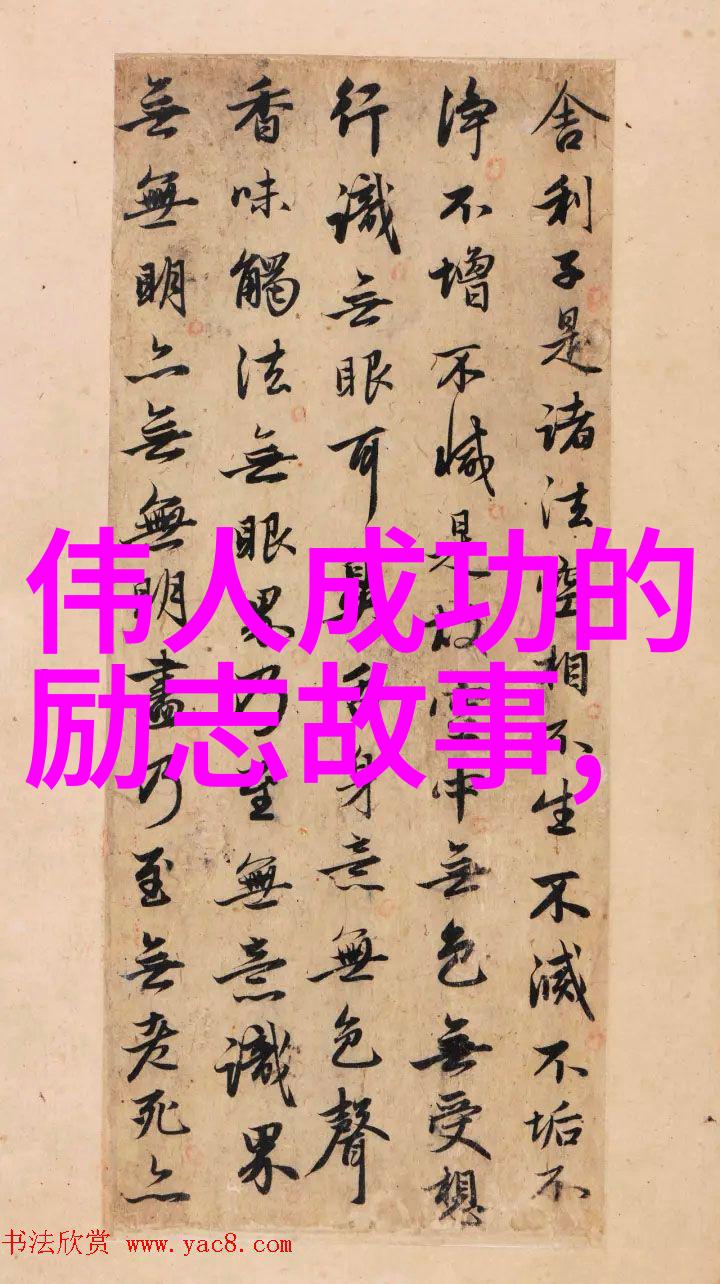 舍利子是诸法空相不生不滅不垢不
淨不增不減是故空中無色無受想
行識無眼耳鼻舌身意無色聲
香味觸法無眼界乃至無意識界
無無明亦無無明盡乃至無老死亦
伟人成功的
励志故事,
书法欣赏 www.yac8.com